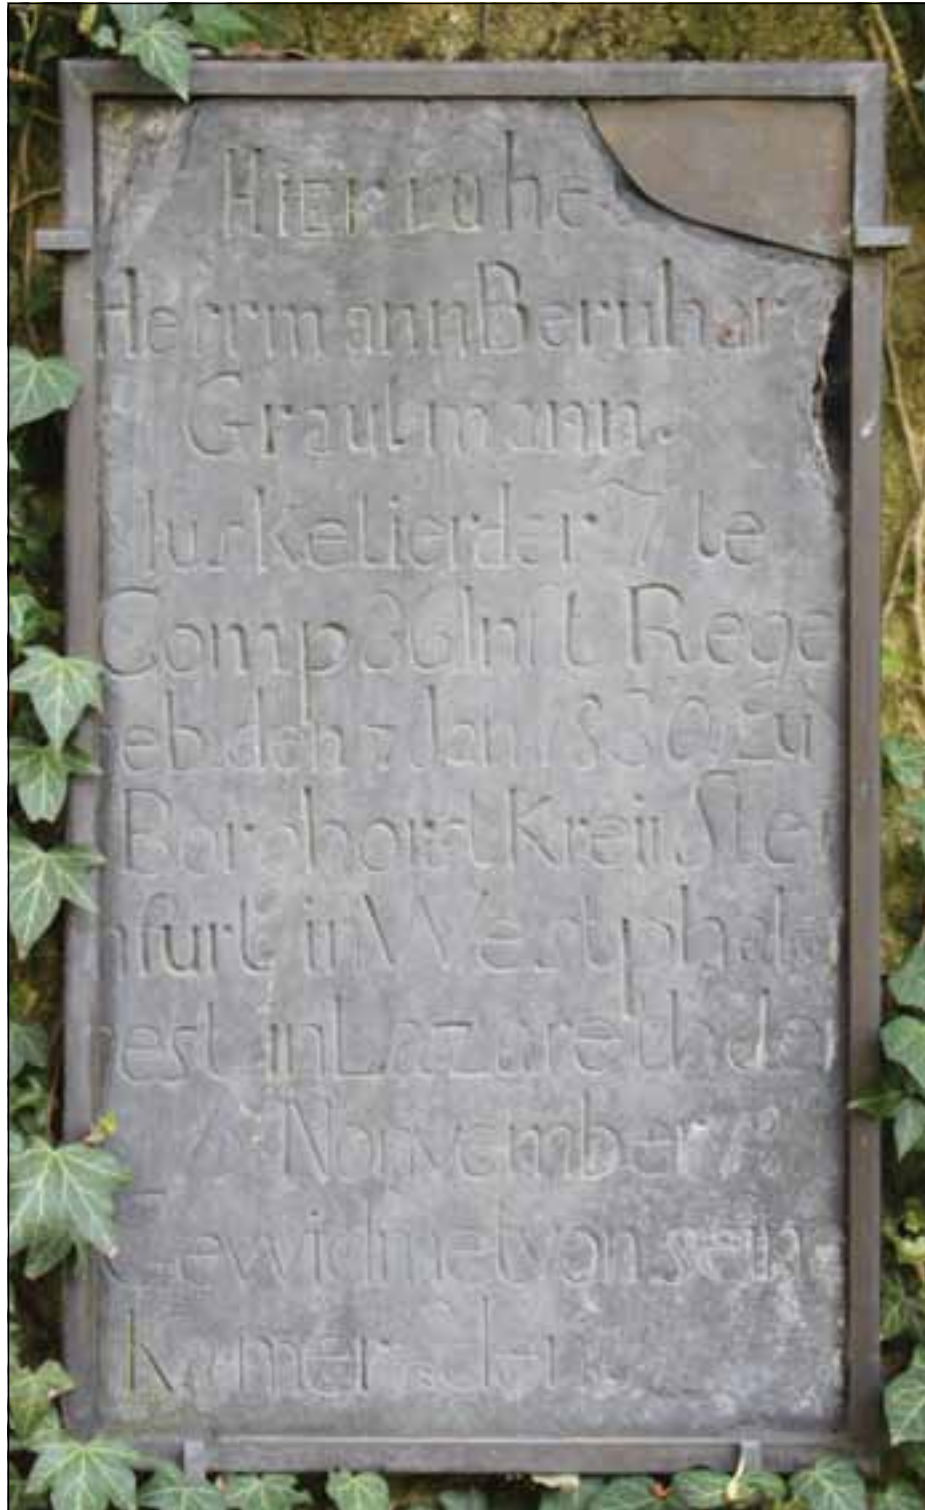 HIER ruhe
Herrmann Bernhar
Grautmann.
Musketier der 7 te
Comp 36 Inft Rege
geb. den 7 Jan 1830 zu
Borghorst Kreis Stei
nfurt in Westphalen
gest. in Lazareth den
November
Gewidmet von sein
Kameraden.